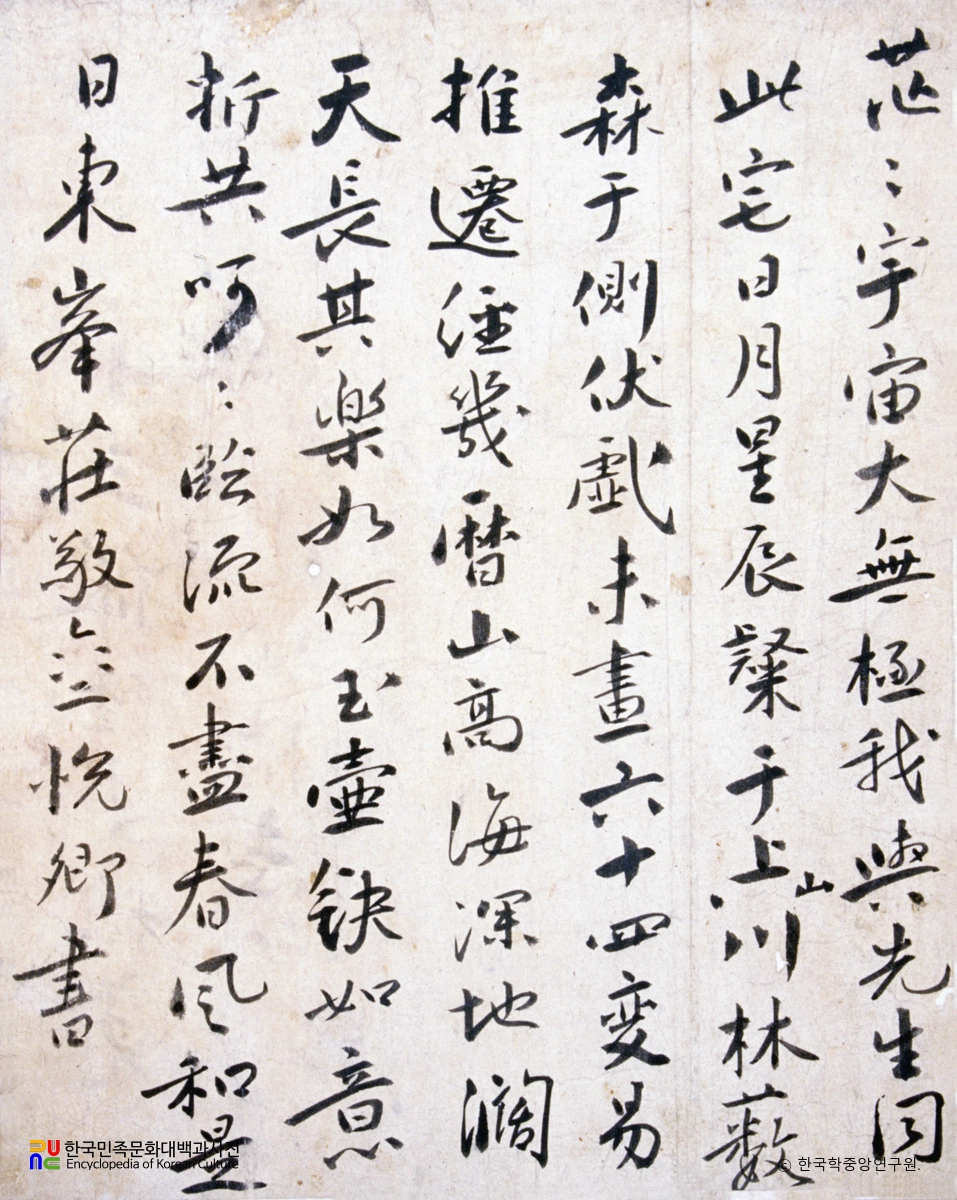 茫〻宇宙大無極我與先生同
此宅日月星辰粲于上山川林薮
森于側伏戱未畫六十四変易
推遷経幾曆山高海深地濶
天長其樂如何玉壷鈌如意
折共呵〻 流不盡春風和是
日東峯荘敬 悅卿書
한국민족문화대백과사전
Encyclopedia of Korean Culture
© 한국학중앙연구원.